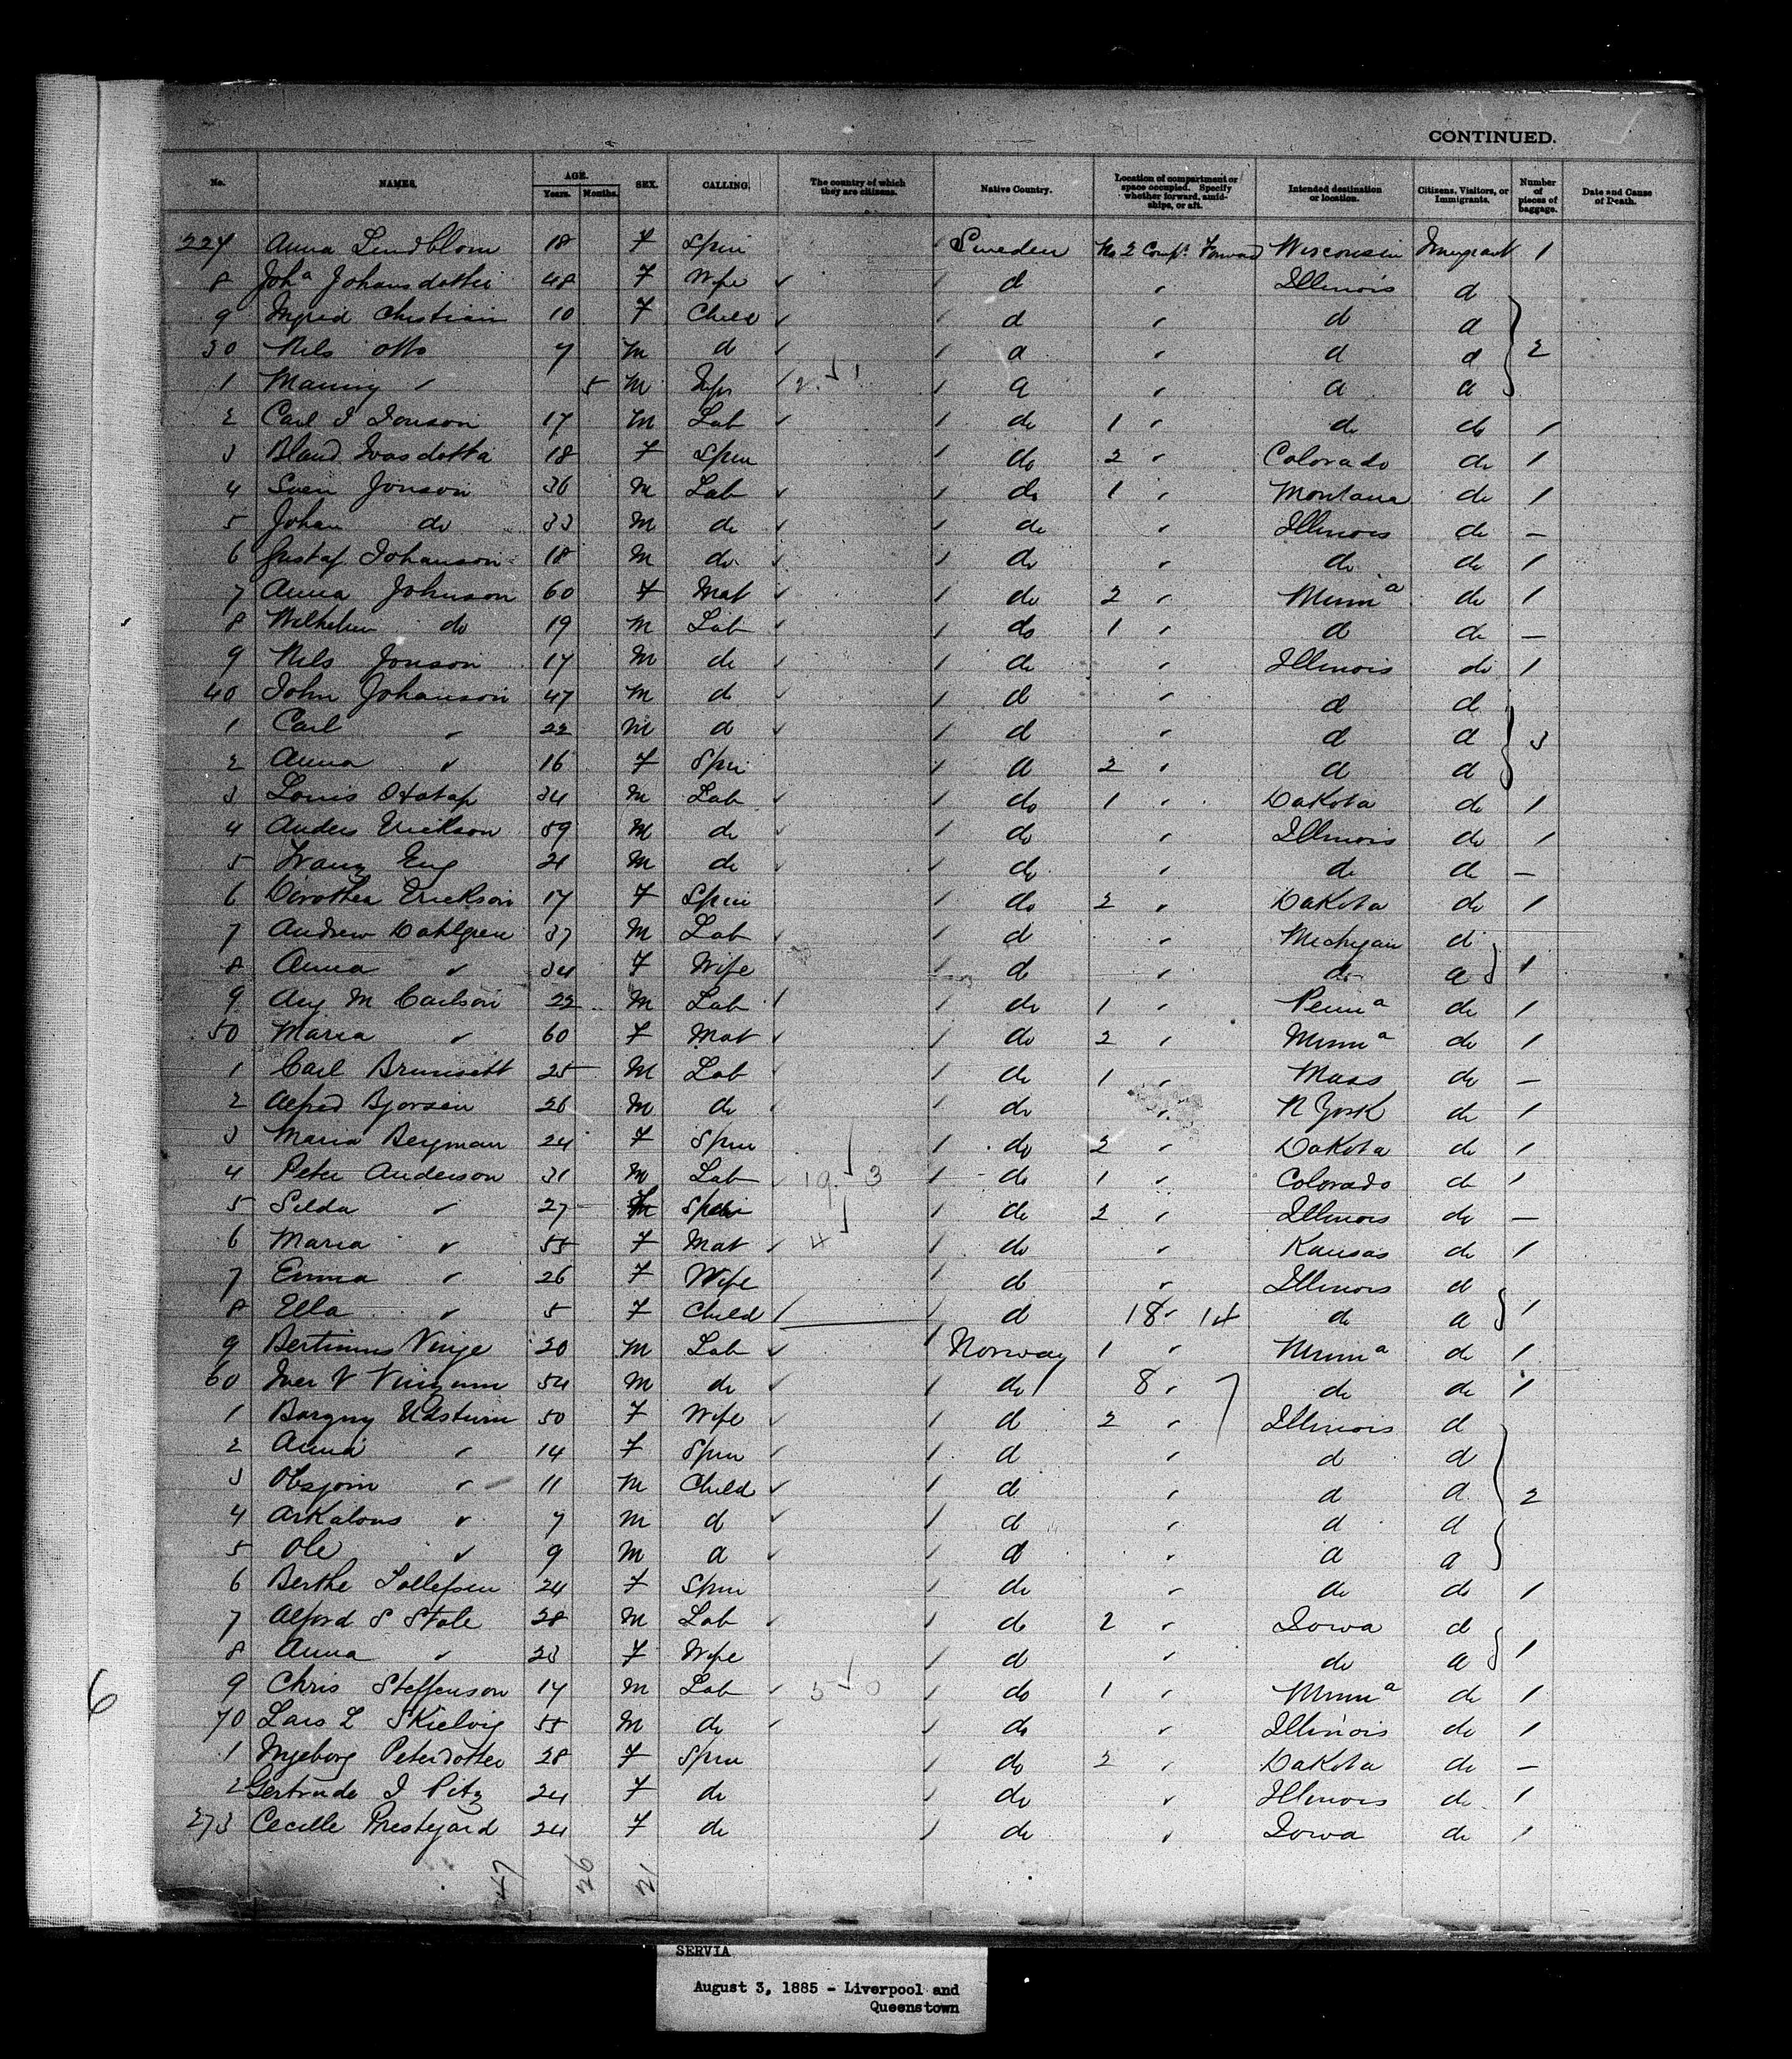 CONTINUED.
No. NAMES. AGE. Years. Months. SEX. CALLING. The country of which they are citizens. Native Country. Location of compartment or space occupied. Specify whether forward, amidships, or aft. Intended destination or location. Citizens, Visitors, or Immigrants. Number of pieces of baggage. Date and Cause of Death.
227 Anna Lindblom 18 F Spin Sweden No 2 Compt Forward Wisconsin Immigrant 1
8 Joha Johansdotter 48 F Wife d " Illinois d
9 Ingrid Christian 10 F Child d " d d
30 Nils Otto 7 M d d " d d 2
1 " 5 M Infr d " d d
2 Carl J Jonson 17 M Lab do 1 " do do 1
3 18 F Spin do 2 " Colorado do 1
4 Sven Jonson 36 M Lab do 1 " Montana do 1
5 Johan do 33 M do do " Illinois do —
6 Gustaf Johanson 18 M do do " do do 1
7 Anna Johnson 60 F Mat do 2 " Minna do 1
8 Wilhelm do 19 M Lab do 1 " d do —
9 Nils Jonson 17 M do do " Illinois do 1
40 John Johanson 47 M d d " d d
1 Carl " 22 M d d " d d 3
2 Anna " 16 F Spin d 2 " d d
3 Louis 34 M Lab do 1 " Dakota do 1
4 Anders Erickson 59 M do do " Illinois do 1
5 Franz Eng 21 M do do " do do —
6 Dorothea Erickson 17 F Spin do 2 " Dakota do 1
7 Andrew Dahlgren 37 M Lab d " Michigan d
8 Anna " 34 F Wife d " do d 1
9 Aug M Carlson 22 M Lab do 1 " Penna do 1
50 Maria " 60 F Mat do 2 " Minna do 1
1 Carl 25 M Lab do 1 " Mass do —
2 Alfred Bjorsen 26 M do do " N York do 1
3 Maria Bergman 24 F Spin do 2 " Dakota do 1
4 Peter Anderson 31 M Lab 19 3 do 1 " Colorado do 1
5 Selda " 27 Spin do 2 " Illinois do —
6 Maria " 55 F Mat 4 do " Kansas do 1
7 Emma " 26 F Wife do " Illinois d
8 Ella " 5 F Child d 18 " 14 do d 1
9 Bertinius Vinje 20 M Lab Norway 1 " Minna do 1
60 Iver V 54 M do do 8 " do do 1
1 50 F Wife d 2 " Illinois d
2 Anna " 14 F Spin d " d d
3 " 11 M Child d " d d 2
4 " 7 M d d " d d
5 Ole " 9 M d d " d d
6 Berthe Tollefsen 24 F Spin do " do do 1
7 Alford S Stole 28 M Lab do 2 " Iowa d
8 Anna " 23 F Wife d " do d 1
9 Chris Steffenson 17 M Lab 5 0 do 1 " Minna do 1
70 Lars L Skielvig 55 M do do " Illinois do 1
1 Ingeborg Petersdotter 28 F Spin do 2 " Dakota do —
2 Gertrude J 24 F do do " Illinois do 1
273 Cecille Prestegard 24 F do do " Iowa do 1
47 26 21
6
SERVIA
August 3, 1885 - Liverpool and
Queenstown